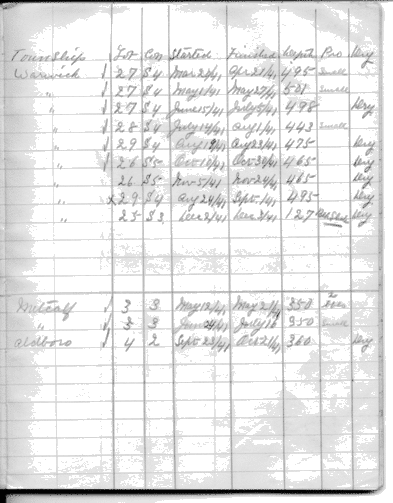 Township Lot Con Started Finished Depth Pro Dry
Warwick √ 27 S4 Mar 24/41 Apr 23/41 495 small
" √ 27 S4 May 1/41 May 27/41 501 small
" √ 27 S4 June 15/41 July 5/41 498 Dry
" √ 28 S4 July 14/41 Aug 1/41 443 small
" √ 29 S4 Aug 23/41 475 Dry
" √ 26 S5 Oct 10/41 Oct 30/41 465 Dry
" 26 S5 Nov 5/41 Nov 24/41 465 Dry
" x 29 S4 Aug 24/41 Sept 1/41 495 Dry
" 25 S3 Dec 2/41 Dec 127 Dry
Metcalf √ 3 3 May 12/41 May 350
" √ 3 3 June 24/41 July 16 350 small
Aldboro √ 4 2 Sept 23/41 Oct 21/41 360 Dry